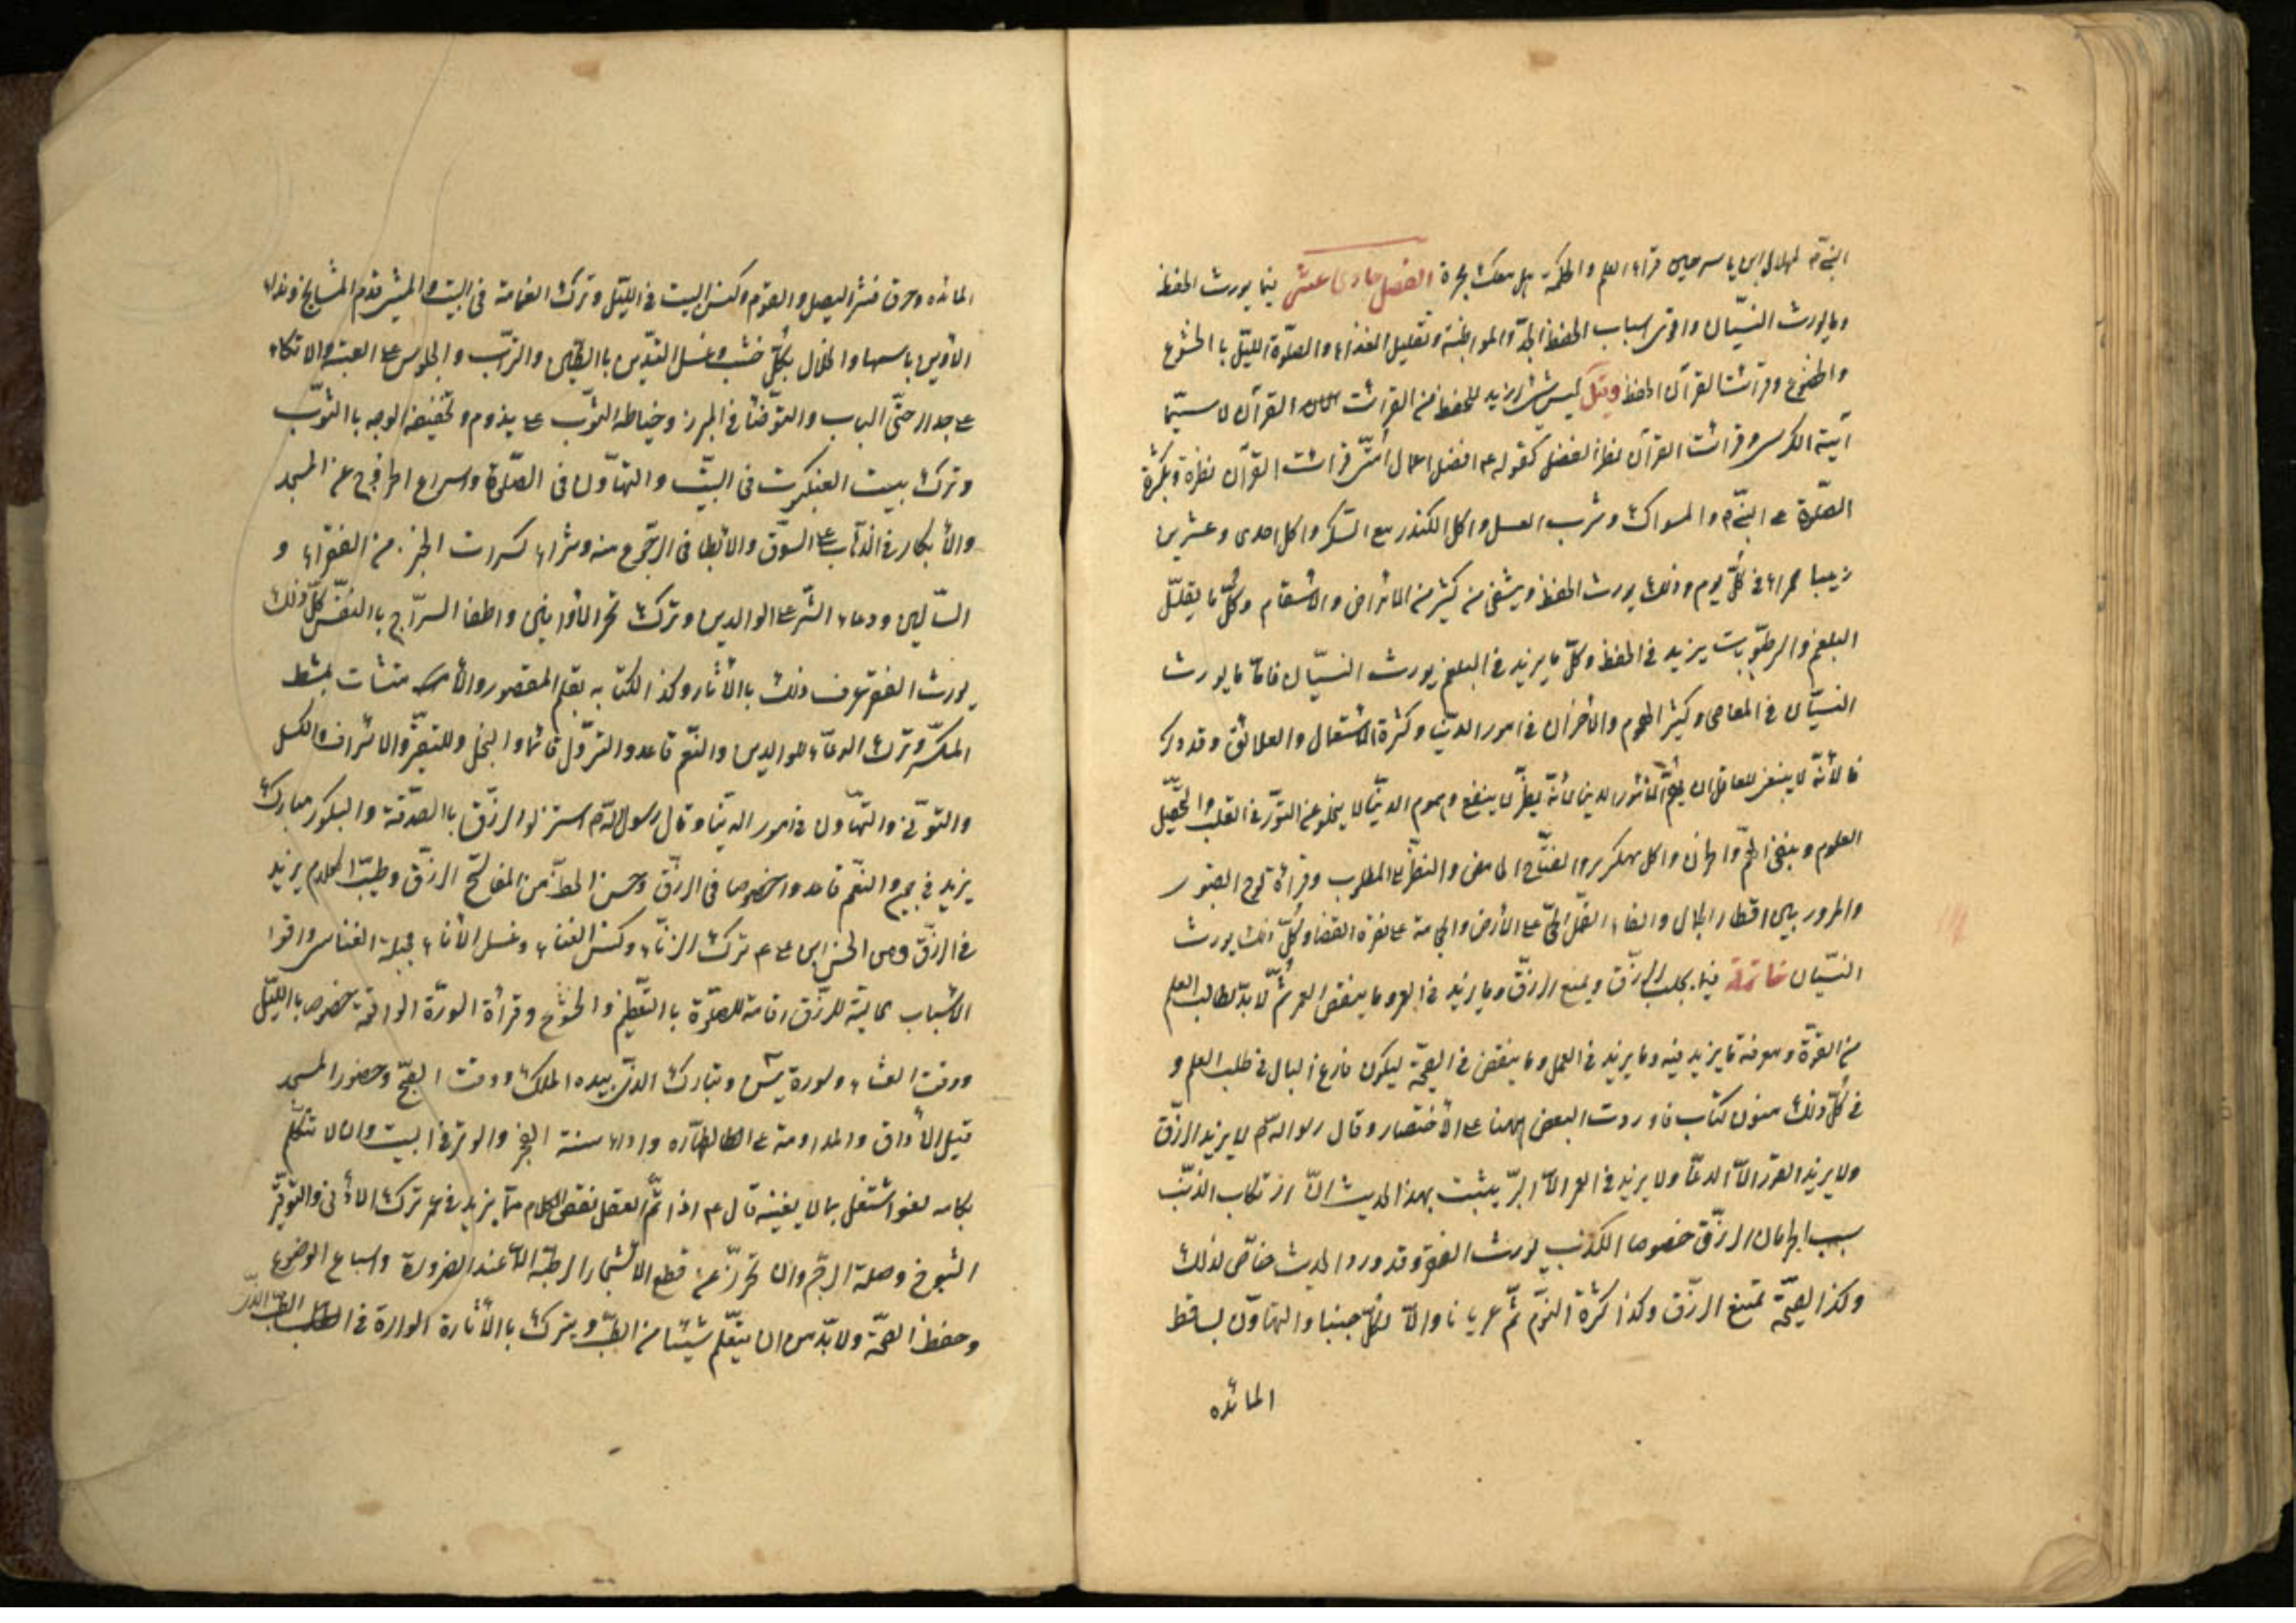 النبي ص لهلال ابن يسار حين قراء العلم والحكمة هل معك محبرة الفصل حادى عشر فيما يورث الحفظ
وما يورث النسيان واقوى اسباب الحفظ الجد والمواظبة وتقليل الغذاء والصلوة الليل با الخشوع
والخضوع وقرائت القرآن الحفظ وقيل ليس شئ ازيد للحفظ من القرائت القرآن لا سيما
آية الكرسى وقرائت القرآن نظرا افضل كقوله ع افضل اعمال امتى قرائت القرآن نظرة وبكثرة
الصلوة على النبى ص والمسواك وشرب العسل واكل الكندر مع السكر واكل احدى وعشرين
زبيبا حمراء فى كل يوم وذلك يورث الحفظ ويشفى من كثير من الأمراض والأسقام وكل ما يقلل
البلغم والرطوبات يزيد فى الحفظ وكل ما يزيد فى البلغم يورث النسيان فاما ما يورث
النسيان فى المعاصى وكثير الهموم والأحزان فى امور الدنيا وكثرة الاشتغال والعلائق وقد ذكر
فا لأنه لا ينبغى للعاقل ان يهم لأمور الدنيا لأنه يضر لا ينفع وهموم الدنيا لا يخلو عن فى القلب
العلوم وينفى الهم والحزان واكل والتفاح الحامض والنظر الى المطلوب وقرأة لوح القبور
والمرور بين اقطار الجمال والقاء القمل الحى على الأرض والحجامة على نقرة القفا وكل ذلك يورث
النسيان خاتمة فيما يجلب الرزق ويمنع الرزق وما يزيد فى العمر وما ينقص العمر ثم لا بد لطالب العلم
من القوة ومعرفة ما يزيد فيه وما يزيد فى العمل وما ينقص فى الصحة ليكون فارغ البال فى طلب العلم و
فى كل ذلك صنفوا كتاب فاوردت البعض ههنا على الأختصار وقال رسول الله ص لا يزيد الرزق
ولا يزيد القدر الا الدعا ولا يزيد فى العمر الا البر يثبت بهذا الحديث ان ارتكاب الذنب
سبب الحرمان الرزق خصوصا الكذب يورث الفقر وقد ورد الحديث خاص لذلك
وكذا الصبحة تمنع الرزق وكذا كثرة النوم ثم عريانا والأكل جنبا والتهاون بساقط
المائده
المائده وحرق قشر البصل والثوم وكنس البيت فى الليل وترك القمامة فى البيت والمشى قدم المشايخ ونداء
الأبوين باسمهما والخلال بكل خشب وغسل اليدين با الطين والتراب والجلوس على العتبة والاتكاء
على جدار حتى الباب والتوضأ فى المبرز وخياطة الثوب على بدنه وتجفيف الوجه با الثوب
وترك بيت العنكبوت فى البيت والتهاون فى الصلوة واسراع الخروج عن المسجد
والأبكار فى الذهاب على السوق والابطا فى الرجوع منه وشراء كسرات الخبز من الفقراء و
السائلين ودعاء الشر على الوالدين وترك تخمر الأوانى واطفا السراج با النفس كل ذلك
يورث الفقر عرف ذلك باالأثار وكذا الكتابه بقلم المعقود والأمتشاط بمشط
المنكسر وترك الدعاء للوالدين والتعمم قاعدا والتسرول قائما والبخل والتقتير والاسراف والكسل
والتوانى والتهاون فى امور الدنيا وقال رسول الله ص استنزلوا الرزق باالصدقة والبكور مبارك
يزيد فى جميع النعم قاعدوا خصوصا فى الرزق وحسن الخط من المفاتح الرزق وطيب الكلام يزيد
فى الرزق وعن الحسن ابن على ع ترك الزناء وكنس الفناء وغسل الأناء مجلبة الغنا واقوا
الاسباب جالبة للرزق اقامة الصلوة با التعظيم والخشوع وقرأة السورة الواقعة خصوصا باالليل
ووقت العشاء وسورة يس وتبارك الذى بيده الملك ووقت الصبح وحضور المسجد
قبل الأذان والمداومة على الطهاره واداء سنة الفجر والوتر فى البيت وان لا تتكلم
بكلام لغو اشتغل بما لا يعنيه قال ع اذا تم العقل نقص الكلام مما يزيد فى عمر ترك الأذى والتوقير
الشيوخ وصلة الرحم وان تحرز عن قطع الأشجار الرطبة الا عند الضرورة واسباغ الوضوء
وحفظ الصحة ولابد من ان يتعلم شيئا من الطب ويتبرك باالأثارة الواردة فى الطب الذى